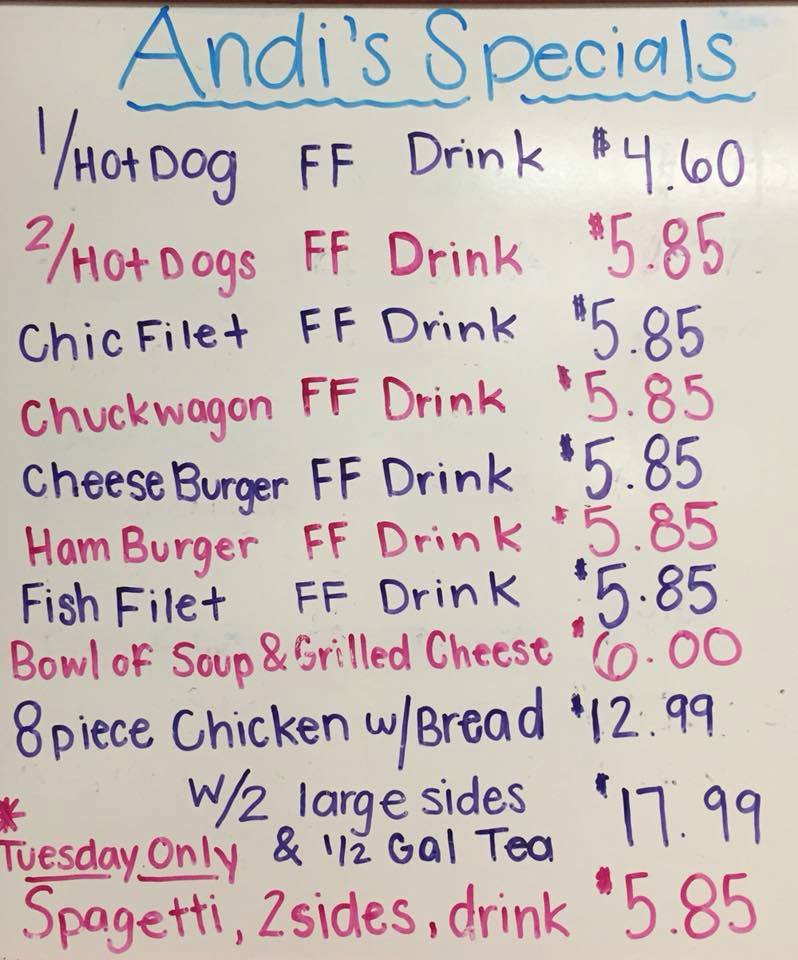 Andi's Specials
1/Hot Dog FF Drink $4.60
2/Hot Dogs FF Drink $5.85
Chic Filet FF Drink $5.85
Chuckwagon FF Drink $5.85
Cheese Burger FF Drink $5.85
Ham Burger FF Drink $5.85
Fish Filet FF Drink $5.85
Bowl of Soup & Grilled Cheese $6.00
8 piece Chicken w/Bread $12.99
W/2 large sides $17.99
& 1/2 Gal Tea
* Tuesday Only
Spagetti, 2 sides, drink $5.85